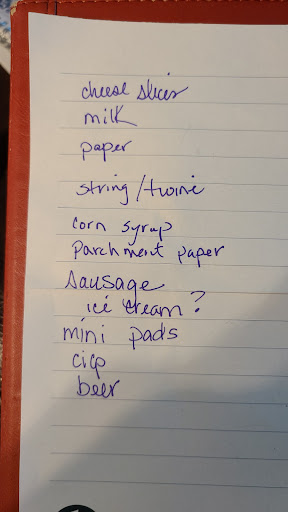 cheese slices
milk
paper
string/twine
corn syrup
Parchment paper
Sausage
ice cream?
mini pads
beer